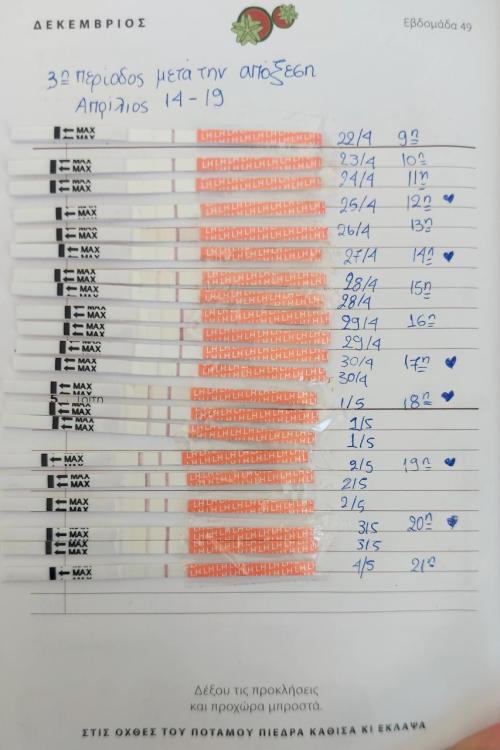 ΔΕΚΕΜΒΡΙΟΣ
Εβδομάδα 49
3η περίοδος μετά την απόξεση
Απρίλιος 14-19
MAX 22/4 9η
MAX 23/4 10η
MAX 24/4 11η
MAX 25/4 12η
MAX 26/4 13η
MAX 27/4 14η
MAX 28/4 15η
MAX 28/4
MAX 29/4 16η
MAX 29/4
MAX 30/4 17η
MAX 30/4
MAX 1/5 18η
MAX 1/5
MAX 1/5
MAX 2/5 19η
MAX 2/5
MAX 2/5
MAX 3/5 20η
MAX 3/5
MAX 4/5 21η
Δέξου τις προκλήσεις
και προχώρα μπροστά.
ΣΤΙΣ ΟΧΘΕΣ ΤΟΥ ΠΟΤΑΜΟΥ ΠΙΕΔΡΑ ΚΑΘΙΣΑ ΚΙ ΕΚΛΑΨΑ